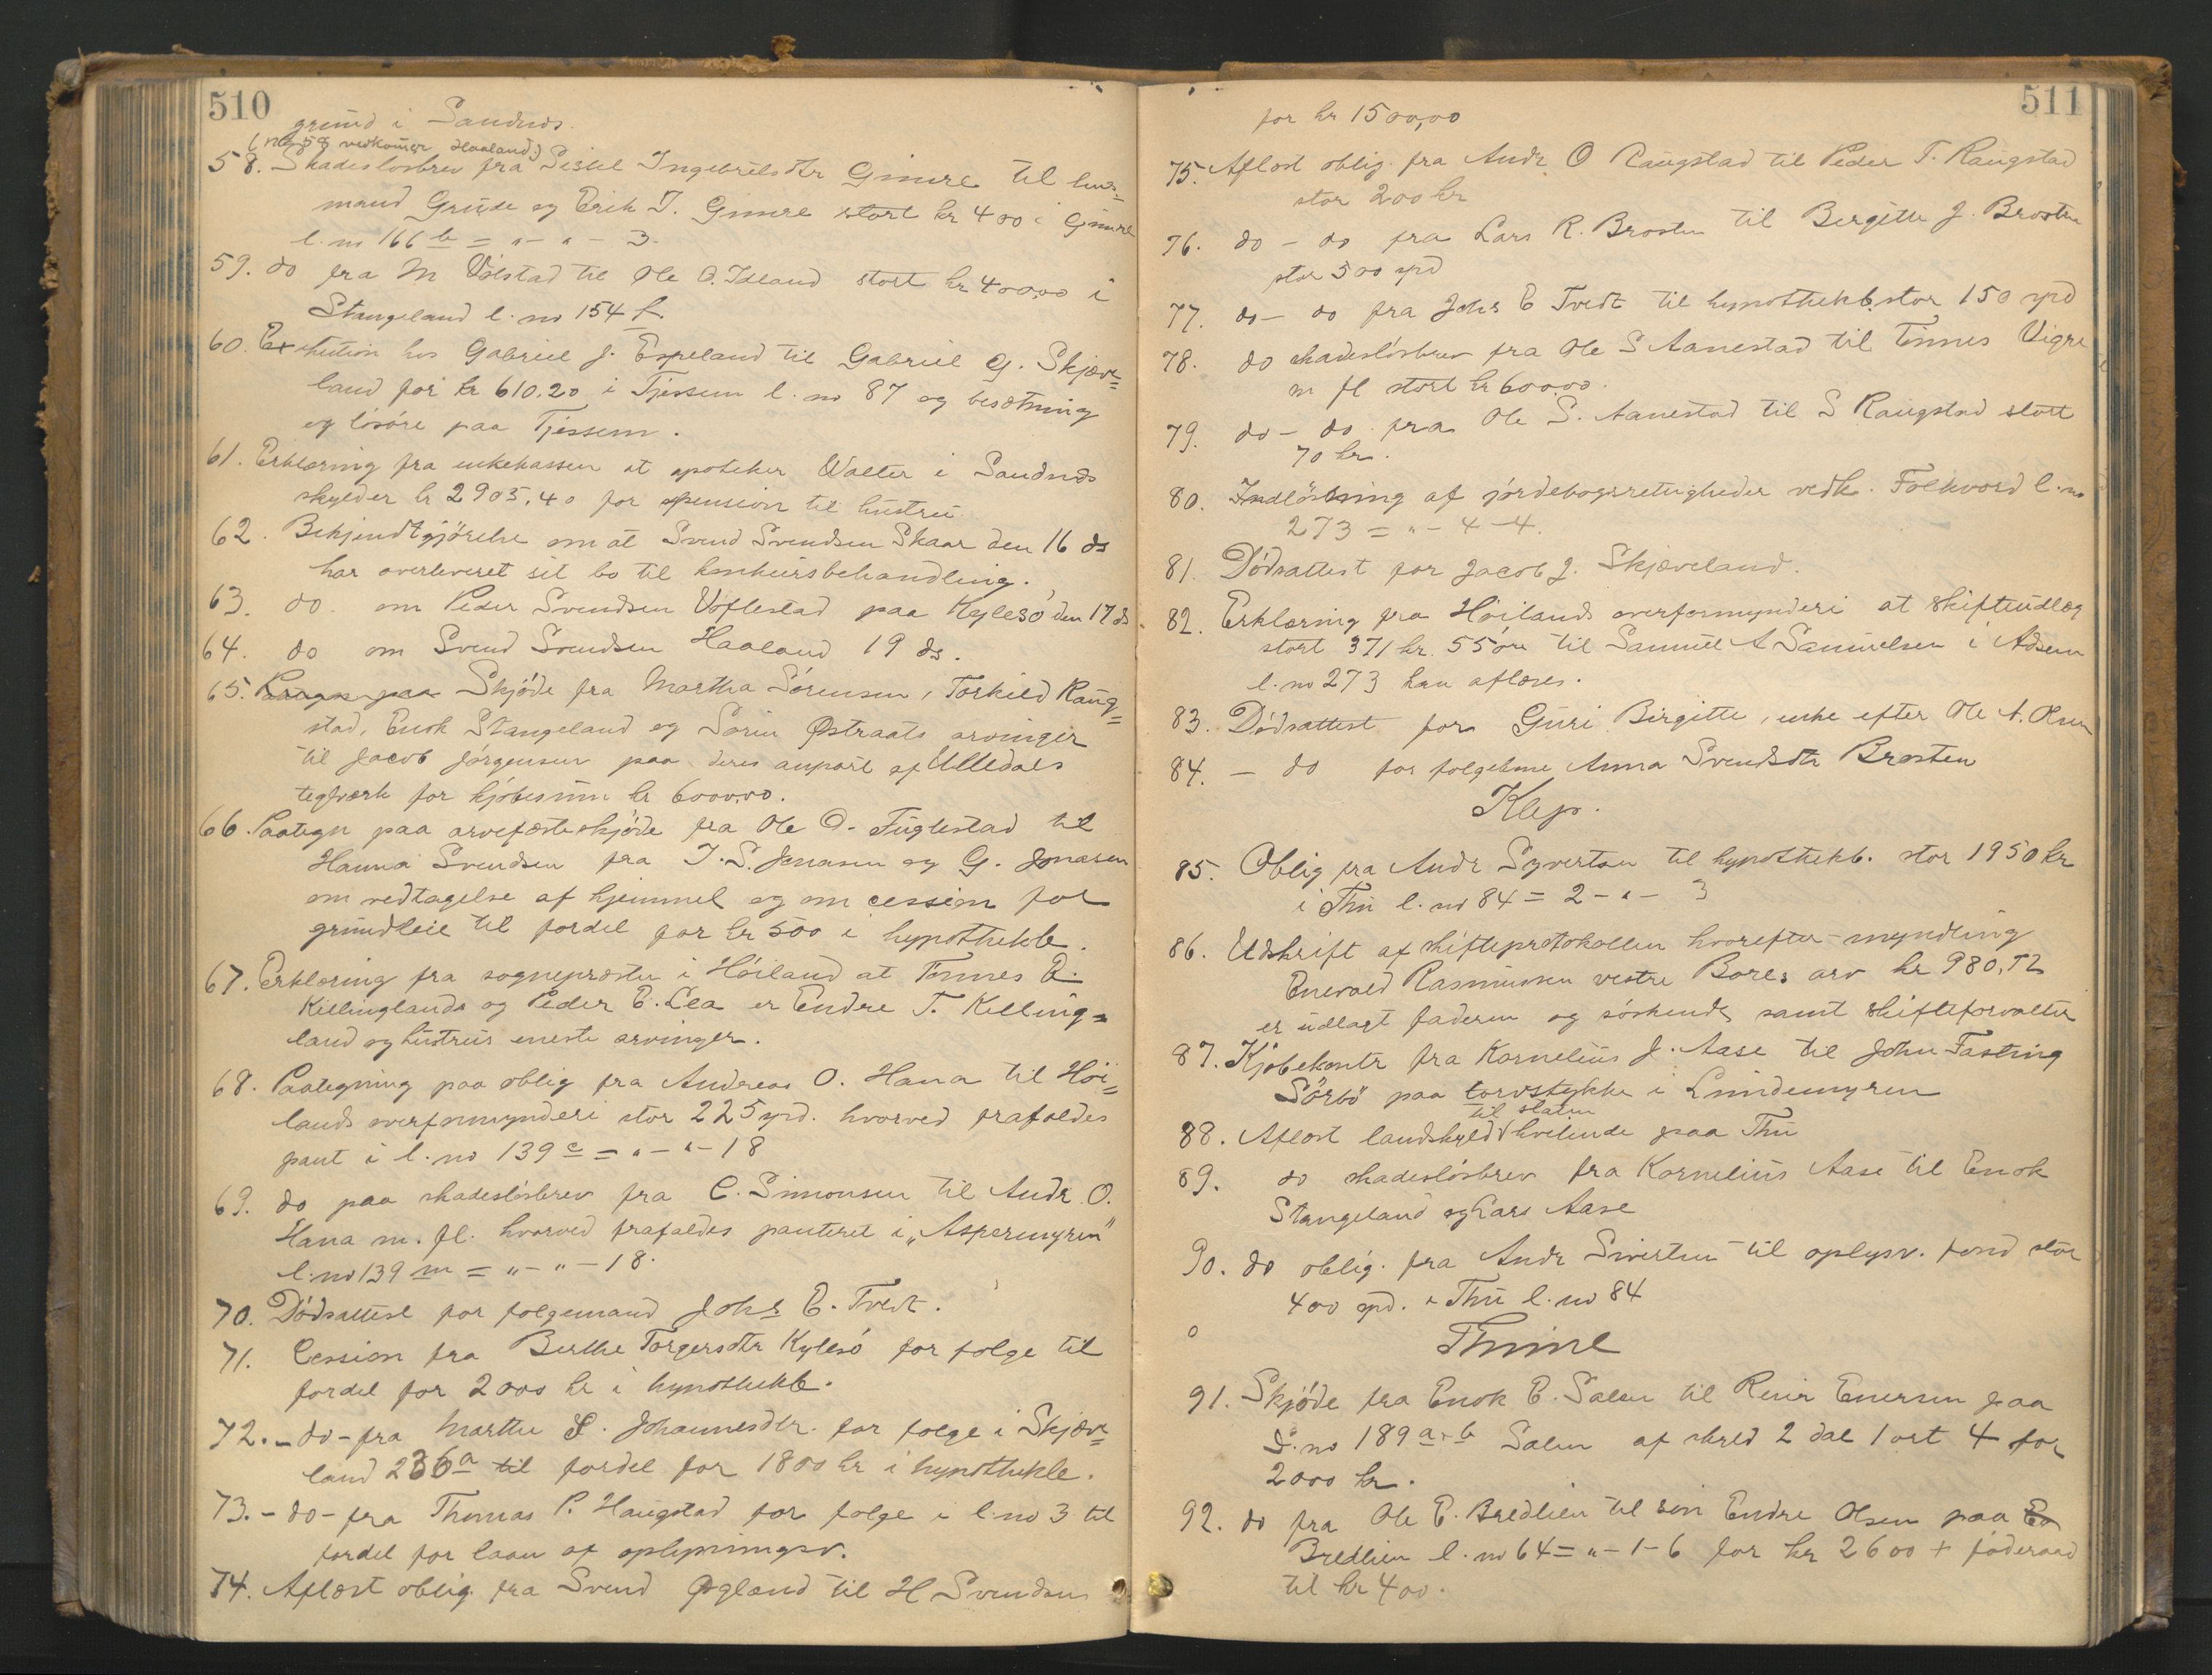 510
grund i Sandnes.
(nr 58 vedkommer Haaland)
58. Skadeslosbrev fra Siskel Ingebretsdtr Gimre til hus=
mand Grude og Erik T. Gimre stort kr 400 i Gimre
l. no 166 b = „ - „ - 3.
59. do fra M Volstad til Ole O. Idland stort kr 400,00 i
Stangeland l. no 154 f.
60. Exekution hos Gabriel J. Espeland til Gabriel G. Skjæve=
land for kr 610.20 i Tjessem l. no 87 og besætning
og lösöre paa Tjessem.
61. Erklæring fra enkekassen at apotheker Walter i Sandnes
skylder kr 2905,40 for pension til hustru.
62. Bekjendtgjörelse om at Svend Svendsen Skaar den 16 ds
har overleveret sit bo til konkursbehandling.
63. do. om Peder Svendsen Voflestad paa Kylesö den 17 ds
64. do om Svend Svendsen Haaland 19 ds.
65. Skjöde fra Martha Sörensen, Torkild Raug=
stad, Enok Stangeland og Sörin Østraats arvinger
til Jacob Jörgensen paa deres anpart af Ulledals
teglværk for kjöbesum kr 6000,00.
66. Paategn paa arvefæsteskjöde fra Ole O. Fuglestad til
Hanna Svendsen fra T. S. Jonasen og G. Jonasen
om vedtagelse af hjemmel og om cession for
grundleie til fordel for kr 500 i hypothekb.
67. Erklæring fra sognepræsten i Höiland at Tonnes E.
Killinglands og Peder E. Lea er Endre T. Killing=
land og hustrus eneste arvinger.
68. Paategning paa oblig fra Andreas O. Hana til Höi=
lands overformynderi stor 225 spd. hvorved frafaldes
pant i l. no 139 c = „ - „ - 18
69. do paa skadeslösbrev fra C. Simonsen til Andr. O.
Hana m. fl. hvorved frafaldes panteret i „Aspermyren"
l. no 139 m = „ - „ - 18.
70. Dödsattest for folgemand Johs E. Tvedt.
71. Cession fra Berthe Torgersdtr Kylesö for folge til
fordel for 2000 kr i hypothekb.
72. - do - fra Marthe S. Johannesdtr. for folge i Skjæve=
land 236 a til fordel for 1800 kr i hypothekb.
73. - do - fra Thomas P. Haugstad for folge i l. no 3 til
fordel for laan af oplysningsv.
74. Aflæst oblig fra Svend Øgland til H Svendsen
511
for kr 1500,00
75. Aflæst oblig. fra Andr. O Raugstad til Peder T. Raugstad
stor 200 kr
76. do - do fra Lars R. Brosten til Bergitte J. Brosten
stor 300 spd
77. do - do fra Johs E Tvedt til hypothekb. stor 150 spd
78. do skadeslösbrev fra Ole S Aanestad til Tönnes Vigre
m fl stort kr 600,00.
79. do - do fra Ole S. Aanestad til S Raugstad stort
70 kr.
80. Indlösning af jordebogsrettigheder vedk. Folkvord l. no
273 = „ - 4 - 4.
81. Dödsattest for Jacob J. Skjæveland.
82. Erklæring fra Höilands overformynderi at skifteudlæg
stort 371 kr. 55 öre til Samuel A Samuelsen i Adsem
l. no 273 kan aflæses.
83. Dödsattest for Guri Birgitte, enke efter Ole A. Olsen
84. - do for folgekone Anna Svendsdtr Brosten
Klep.
85. Oblig fra Andr Syvertsen til hypothekb. stor 1950 kr
i Thu l. no 84 = 2 - „ - 3
86. Udskrift af skifteprotokollen hvorefter myndling
Enevald Rasmussen vestre Bores arv kr 980,52
er udlagt faderen og söskende, samt skifteforvalter
87. Kjöbekontr fra Kornelius J. Aase til John Fasting
Sörbö paa torvstykke i Lindemyren
88. Aflæst landskyld til staten hvilende paa Thu
89. do skadeslösbrev fra Kornelius Aase til Enok
Stangeland og Lars Aase
90. do oblig. fra Andr Sivertsen til oplysn. fond stor
400 spd. i Thu l. no 84
Thime
91. Skjöde fra Enok E. Salen til Reier Enersen paa
L. no 189 a, b Salen af skyld 2 dal 1 ort 4 for
2000 kr.
92. do fra Ole E. Bredlien til sön Endre Olsen paa
Bredlien l. no 64 = „ - 1 - 6 for kr 2600 + föderaad
til kr 400.